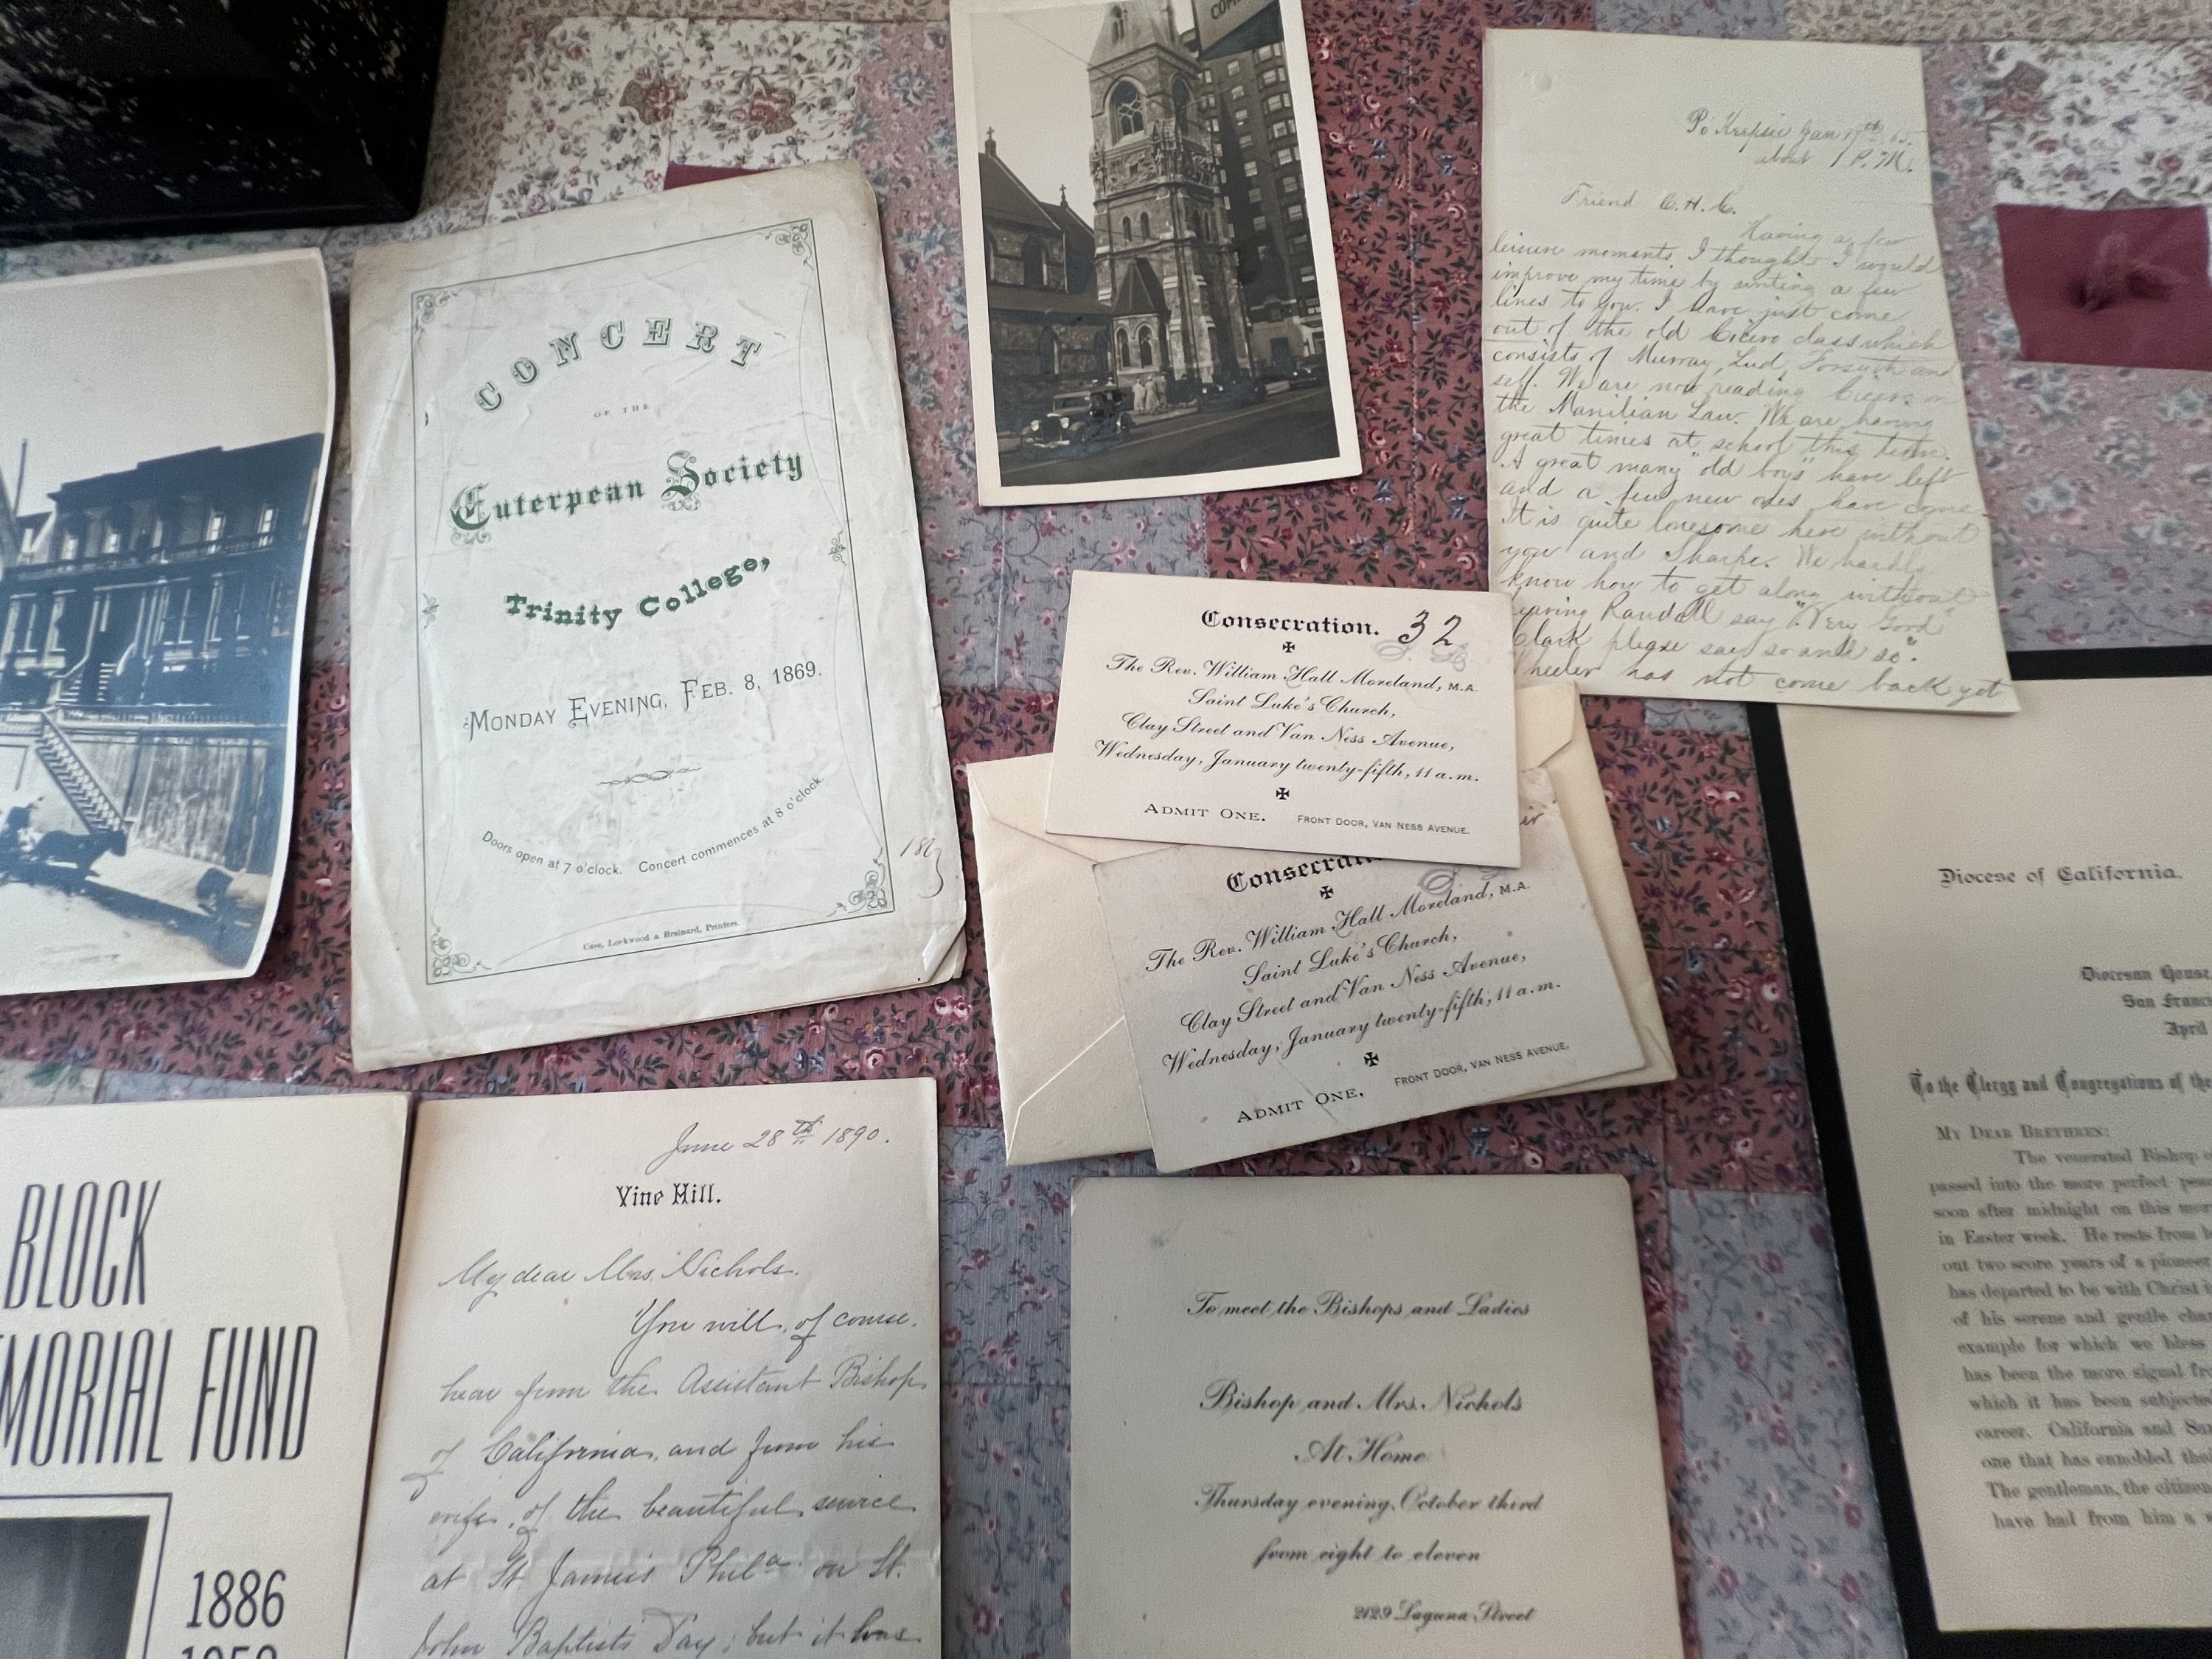 CONCERT
OF THE
Euterpean Society
Trinity College,
MONDAY EVENING, FEB. 8, 1869.
Doors open at 7 o'clock. Concert commences at 8 o'clock.
Case, Lockwood & Brainard, Printers.
Po'Keepsie Jan 17th 65.
about 1 P.M.
Friend C.H.C.
Having a few
leisure moments, I thought I would
improve my time by writing a few
lines to you. I have just come
out of the old Cicero class which
consists of Murray, Lud, Forsyth and
self. We are now reading Cicero on
the Manilian Law. We are having
great times at school this term.
A great many "old boys" have left
and a few new ones have come
It is quite lonesome here without
you and Sharpe. We hardly
know how to get along without
Randall say "Very Good"
Clark please say so and so".
Wheeler has not come back yet
Consecration. 32
The Rev. William Hall Moreland, M.A.
Saint Luke's Church,
Clay Street and Van Ness Avenue,
Wednesday, January twenty-fifth, 11 a.m.
ADMIT ONE. FRONT DOOR, VAN NESS AVENUE.
Consecrati
The Rev. William Hall Moreland, M.A.
Saint Luke's Church,
Clay Street and Van Ness Avenue,
Wednesday, January twenty-fifth, 11 a.m.
ADMIT ONE, FRONT DOOR, VAN NESS AVENUE.
BLOCK
MORIAL FUND
1886
June 28th 1890.
Vine Hill.
My dear Mrs. Nichols.
You will, of course,
hear from the Assistant Bishop
of California, and from his
wife, of the beautiful service
at St James's Phila. on St.
John Baptist's Day; but it has
To meet the Bishops and Ladies
Bishop and Mrs. Nichols
At Home
Thursday evening, October third
from eight to eleven
2129 Laguna Street
Diocese of California.
Diocesan House,
San Franc
April
To the Clergy and Congregations of the
MY DEAR BRETHREN:
The venerated Bishop o
passed into the more perfect peac
soon after midnight on this mor
in Easter week. He rests from
out two score years of a pioneer
has departed to be with Christ
of his serene and gentle cha
example for which we bless
has been the more signal fr
which it has been subjecte
career. California and San
one that has ennobled the
The gentleman, the citizen
have had from him a